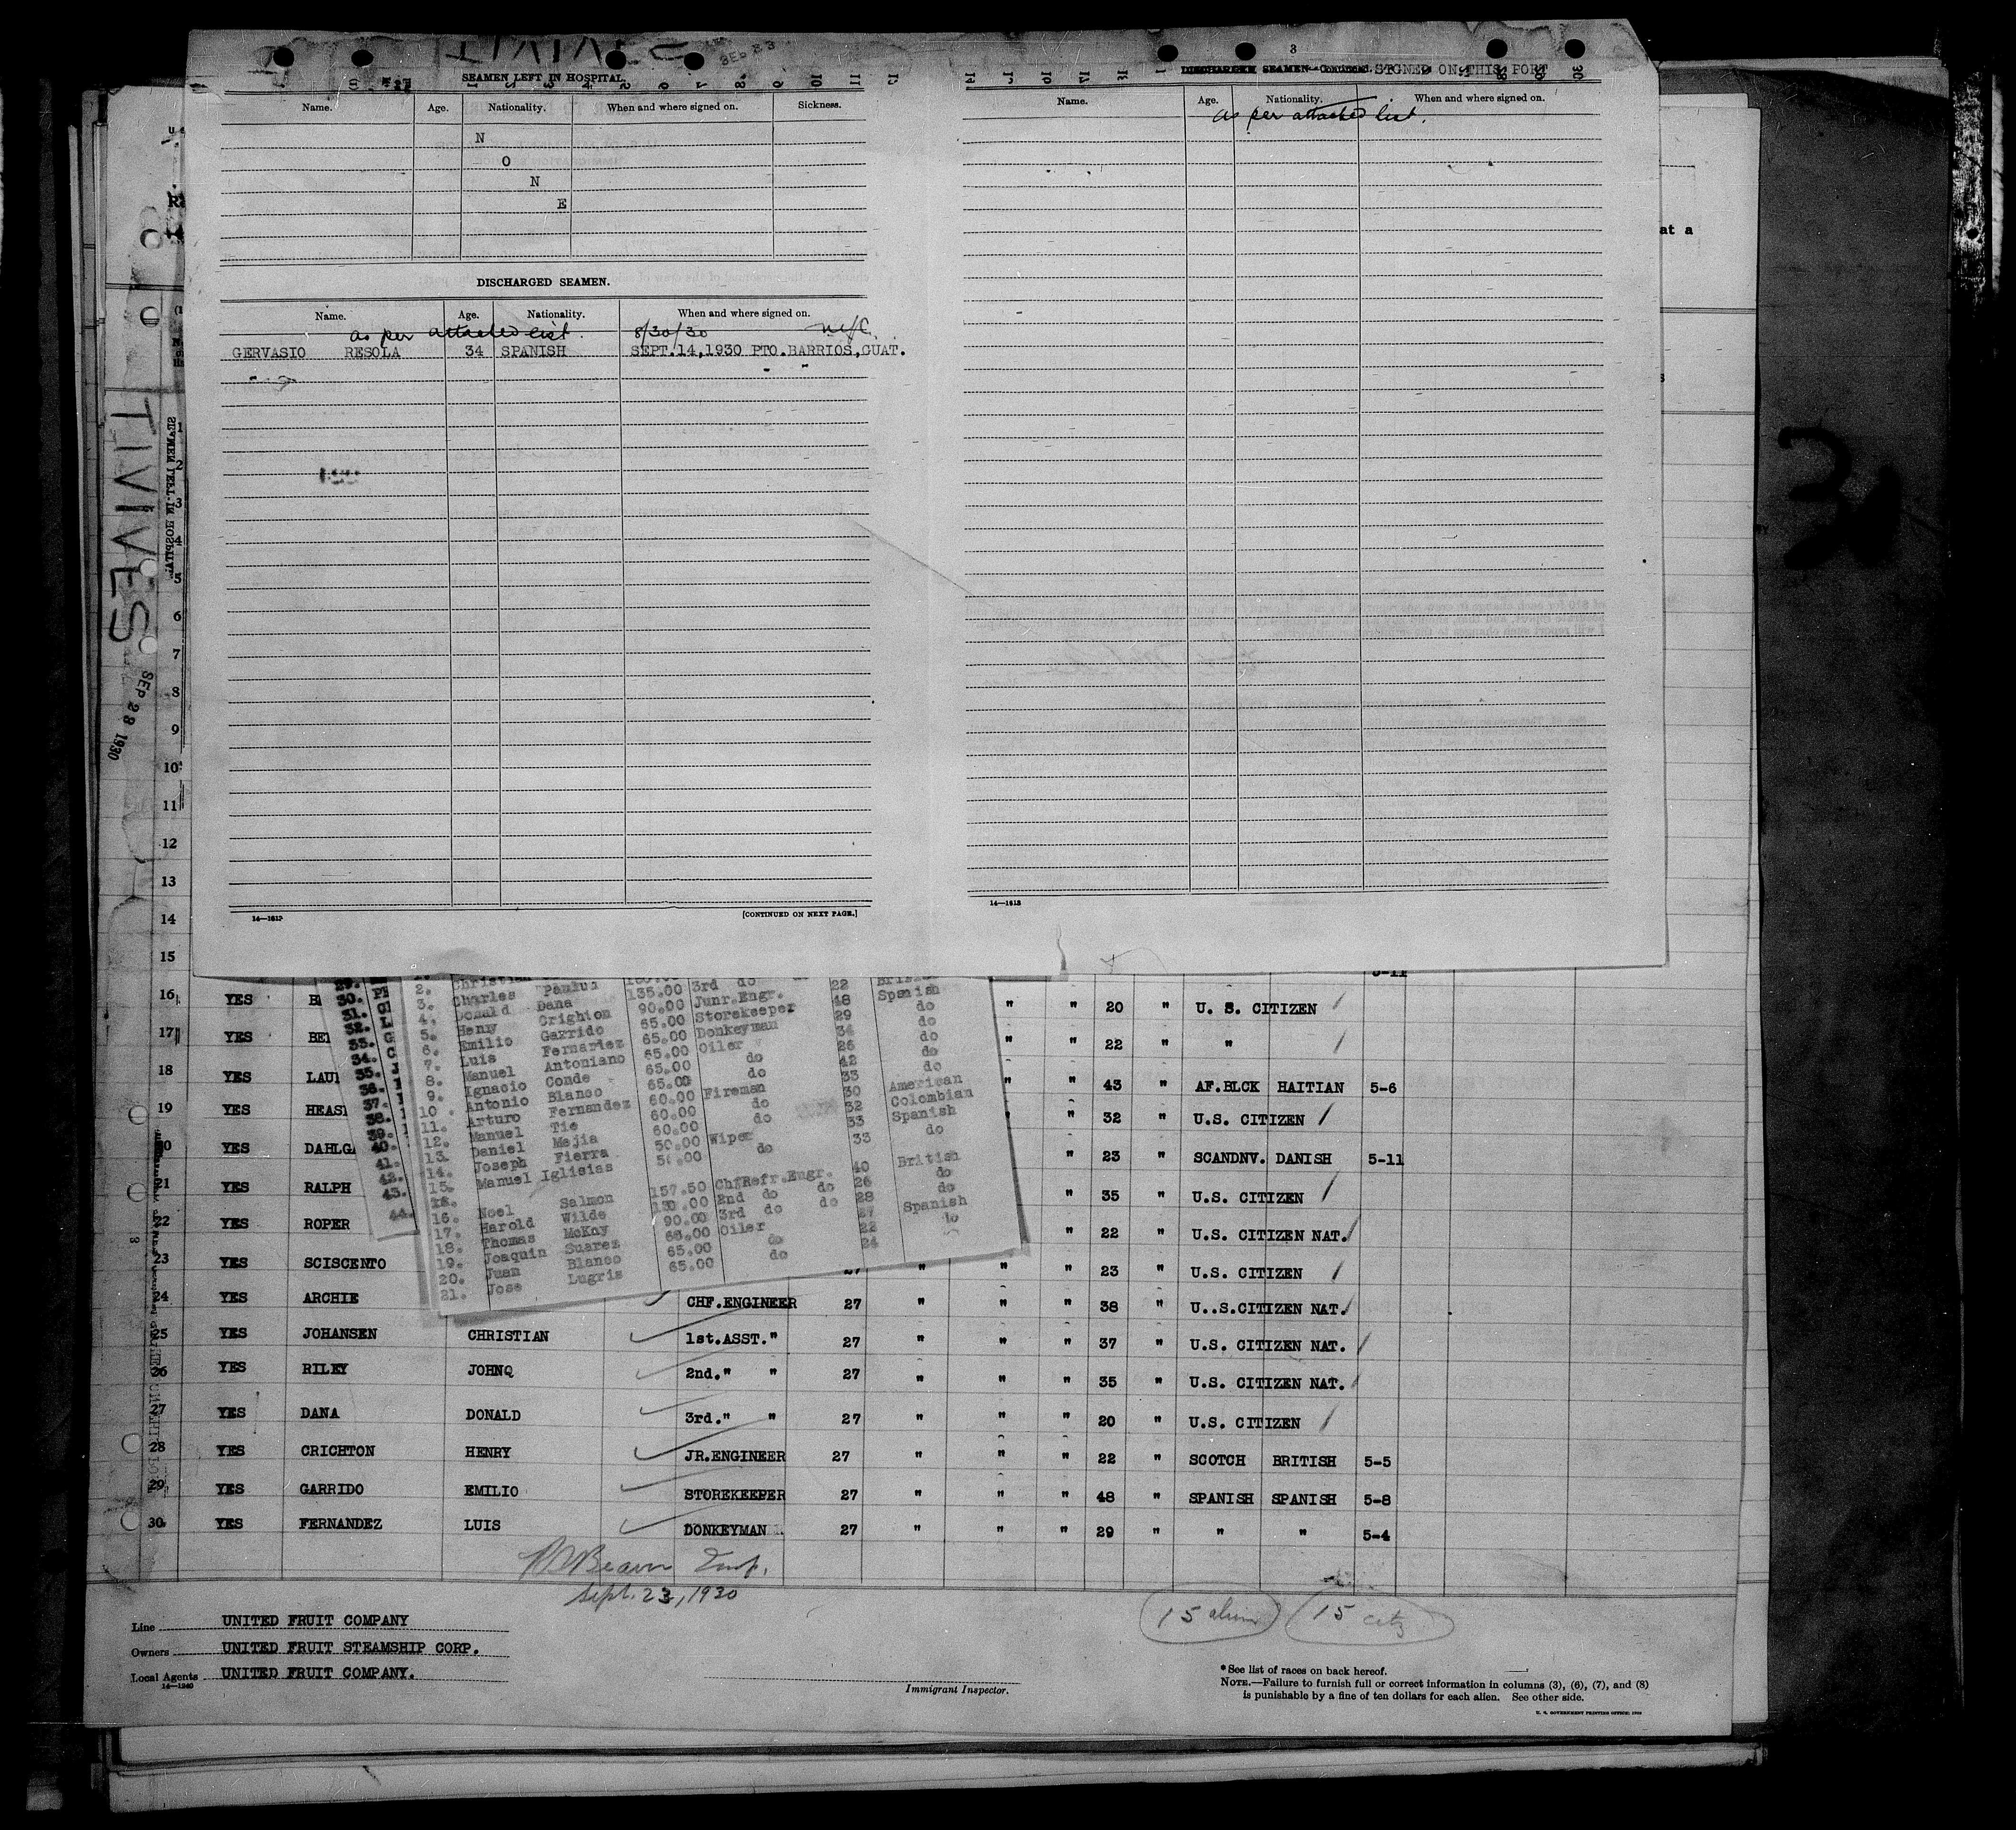 3
SEAMEN LEFT IN HOSPITAL.
Name. Age. Nationality. When and where signed on. Sickness.
N
O
N
E
DISCHARGED SEAMEN.
Name. Age. Nationality. When and where signed on.
as per attached list. 8/30/30
GERVASIO RESOLA 34 SPANISH SEPT.14,1930 PTO.BARRIOS,GUAT.
14—1613 [CONTINUED ON NEXT PAGE.]
DISCHARGED SEAMEN—Continued. SIGNED ON THIS PORT
Name. Age. Nationality. When and where signed on.
as per attached list.
14—1613
at a
TIVIVES
SEP 28 1930
SEAMEN LEFT IN HOSPITAL
1
2
3
4
5
6
7
8
9
10
11
12
13
14
15
5-11
29.
30.
31.
32.
33.
34.
35.
36.
37.
38.
39.
40.
41.
42.
43.
44.
2. Christian
3. Charles 135.00 3rd do 22
4. Donald Dana 90.00 Junr.Engr. 48 Spanish
5. Henry Crighton 65.00 Storekeeper 29 do
6. Emilio Garrido 65.00 Donkeyman 34 do
7. Luis Fernandez 65.00 Oiler 26 do
8. Manuel Antoniano 65.00 do 42 do
9. Ignacio Conde 65.00 do 33
10. Antonio Blanco 60.00 Fireman 30 American
11. Arturo Fernandez 60.00 do 32 Colombian
12. Manuel Tie 60.00 do 33 Spanish
13. Daniel Mejia 50.00 Wiper 33 do
14. Joseph Fierra 50.00 do
15. Manuel Iglisias
16. Noel Salmon 157.50 Ch.Refr.Engr. 40 British
17. Harold Wilde 130.00 2nd do do 26 do
18. Thomas McKny 90.00 3rd do do 28 do
19. Joaquin Suarez 65.00 Oiler 27 Spanish
20. Juan Blanco 65.00 do 22 do
21. Jose Lugris 65.00 do 24
16 YES " " 20 " U. S. CITIZEN
17 YES " " 22 " "
18 YES " " 43 " AF.BLCK HAITIAN 5-6
19 YES " " 32 " U.S. CITIZEN
20 YES " 23 " SCANDNV. DANISH 5-11
21 YES RALPH " 35 " U.S. CITIZEN
22 YES ROPER " 22 " U.S. CITIZEN NAT.
23 YES SCISCENTO 27 " " " 23 " U.S. CITIZEN
24 YES ARCHIE CHF.ENGINEER 27 " " " 38 " U..S.CITIZEN NAT.
25 YES JOHANSEN CHRISTIAN 1st.ASST." 27 " " " 37 " U.S. CITIZEN NAT.
26 YES RILEY JOHNQ 2nd." " 27 " " " 35 " U.S. CITIZEN NAT.
27 YES DANA DONALD 3rd." " 27 " " " 20 " U.S. CITIZEN
28 YES CRICHTON HENRY JR.ENGINEER 27 " " " 22 " SCOTCH BRITISH 5-5
29 YES GARRIDO EMILIO STOREKEEPER 27 " " " 48 " SPANISH SPANISH 5-8
30 YES FERNANDEZ LUIS DONKEYMAN 27 " " " 29 " " " 5-4
Sept. 23, 1930
15 alien 15 citz
Line UNITED FRUIT COMPANY
Owners UNITED FRUIT STEAMSHIP CORP.
Local Agents UNITED FRUIT COMPANY.
14—1240
Immigrant Inspector.
*See list of races on back hereof.
NOTE.—Failure to furnish full or correct information in columns (3), (6), (7), and (8)
is punishable by a fine of ten dollars for each alien. See other side.
U. S. GOVERNMENT PRINTING OFFICE: 1929